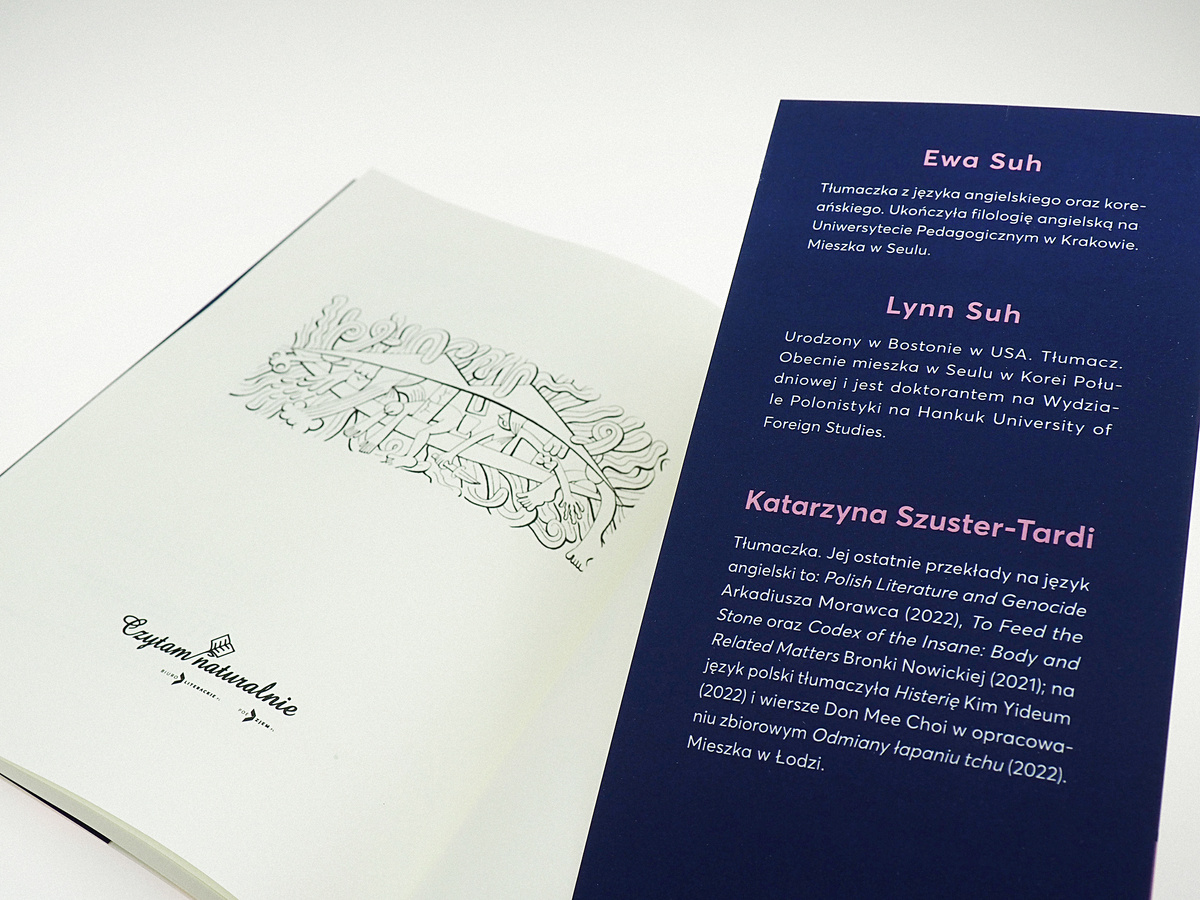 Czytam naturalnie
BIURO LITERACKIE.PL
Ewa Suh
Tłumaczka z języka angielskiego oraz kore-
ańskiego. Ukończyła filologię angielską na
Uniwersytecie Pedagogicznym w Krakowie.
Mieszka w Seulu.
Lynn Suh
Urodzony w Bostonie w USA. Tłumacz.
Obecnie mieszka w Seulu w Korei Połu-
dniowej i jest doktorantem na Wydzia-
le Polonistyki na Hankuk University of
Foreign Studies.
Katarzyna Szuster-Tardi
Tłumaczka. Jej ostatnie przekłady na język
angielski to: Polish Literature and Genocide
Arkadiusza Morawca (2022), To Feed the
Stone oraz Codex of the Insane: Body and
Related Matters Bronki Nowickiej (2021); na
język polski tłumaczyła Histerię Kim Yideum
(2022) i wiersze Don Mee Choi w opracowa-
niu zbiorowym Odmiany łapaniu tchu (2022).
Mieszka w Łodzi.